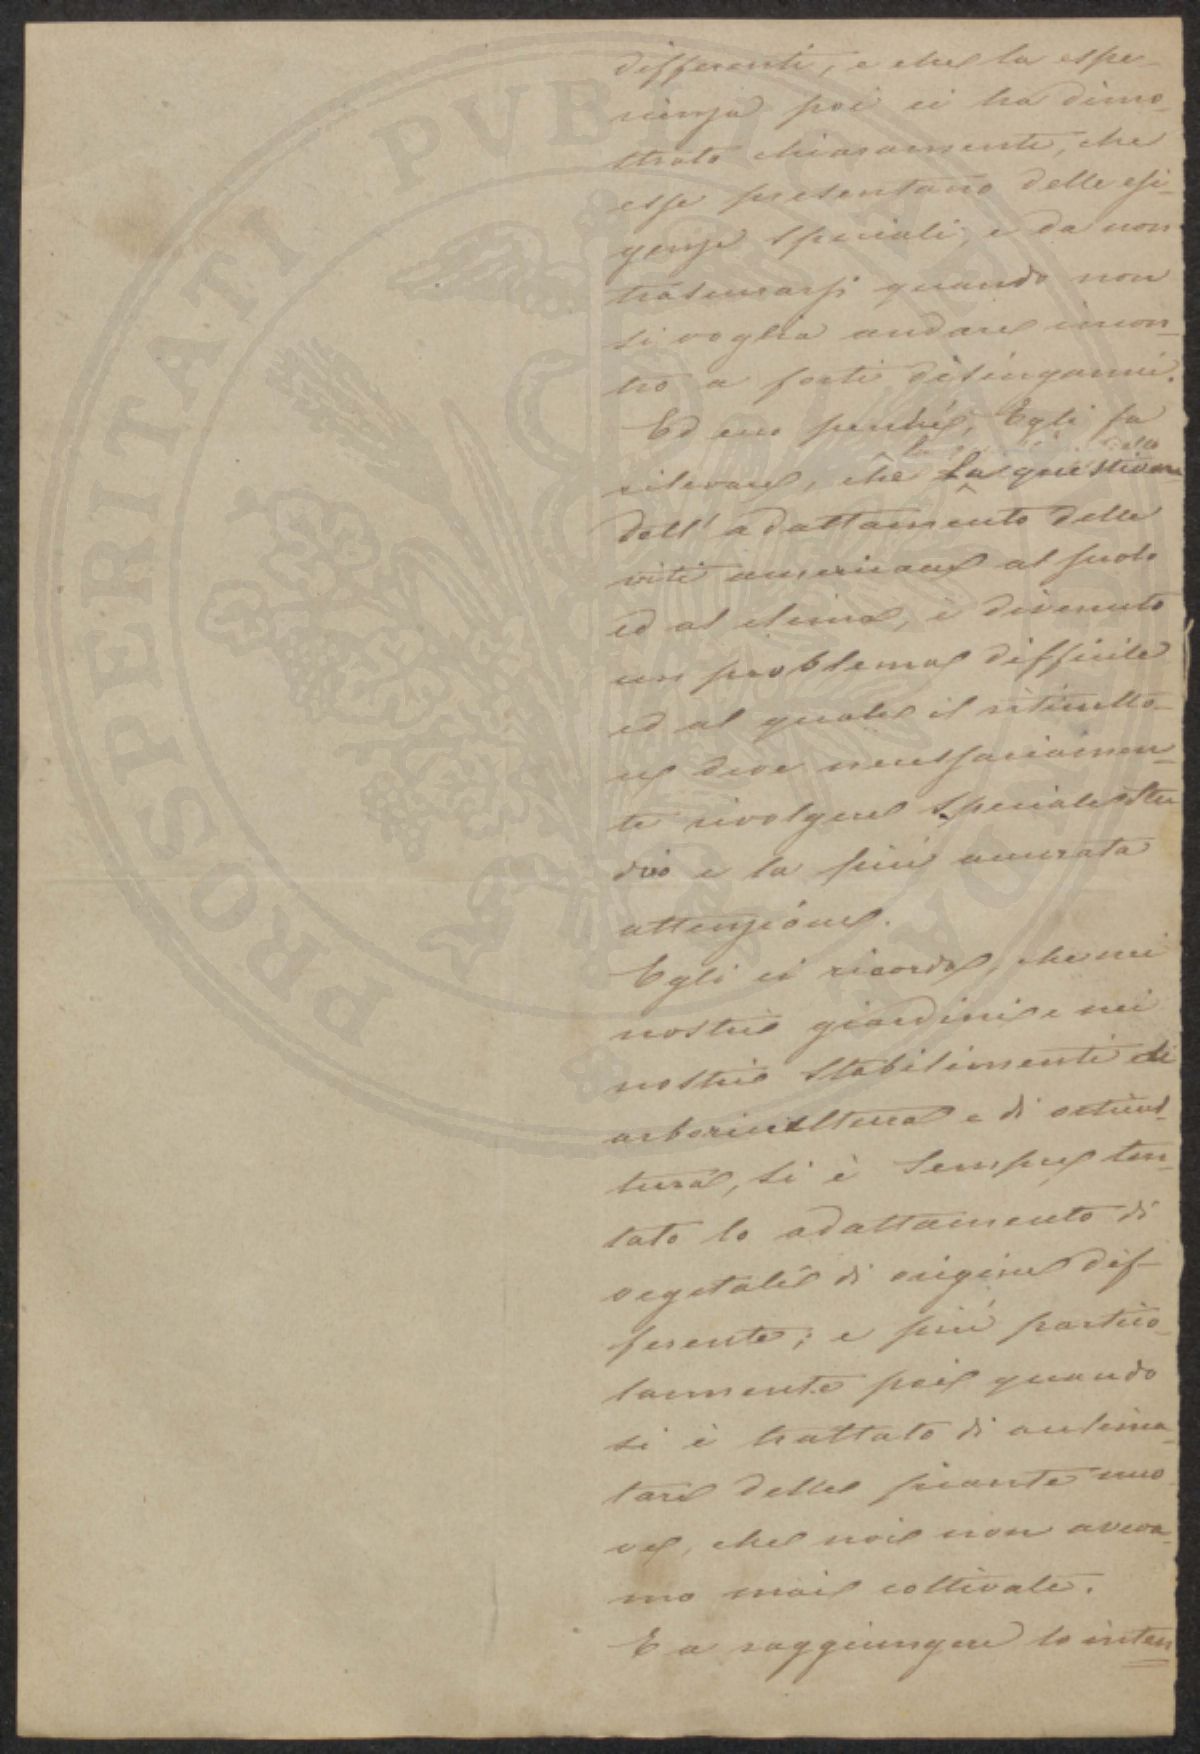 differenti, e che la espe-
rienza poi ci ha dimo-
strato chiaramente, che
esse presentano delle esi-
genze speciali, e da non
trascurarsi quando non
si voglia andare incon-
tro a forti disinganni.
Ed ecco perché, Egli fa
rilevare, che la questione
dell'adattamento delle
viti americane al suolo
ed al clima, è divenuto
un problema difficile
ed al quale il viticulto-
re deve necessariamen-
te rivolgere speciale stu
dio e la più accurata
attenzione.
Egli ci ricorda, che nei
nostri giardini e nei
nostri stabilimenti di
arboricultura e di orticul-
tura, si è sempre ten-
tato lo adattamento di
vegetali di origine dif-
ferente; e più partico-
larmente poi quando
si è trattato di acclima-
tare delle piante nuo-
ve, che noi non aveva-
mo mai coltivate.
E a raggiungere lo inten
PROSPERITATI PVBLICAE